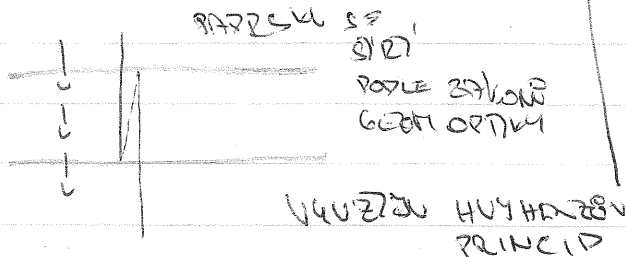 PAPRSKU SE
ŠÍŘÍ
PODLE ZÁKONŮ
GEOM OPTIKY
VYUŽIJU HUYHENZŮV
PRINCIP